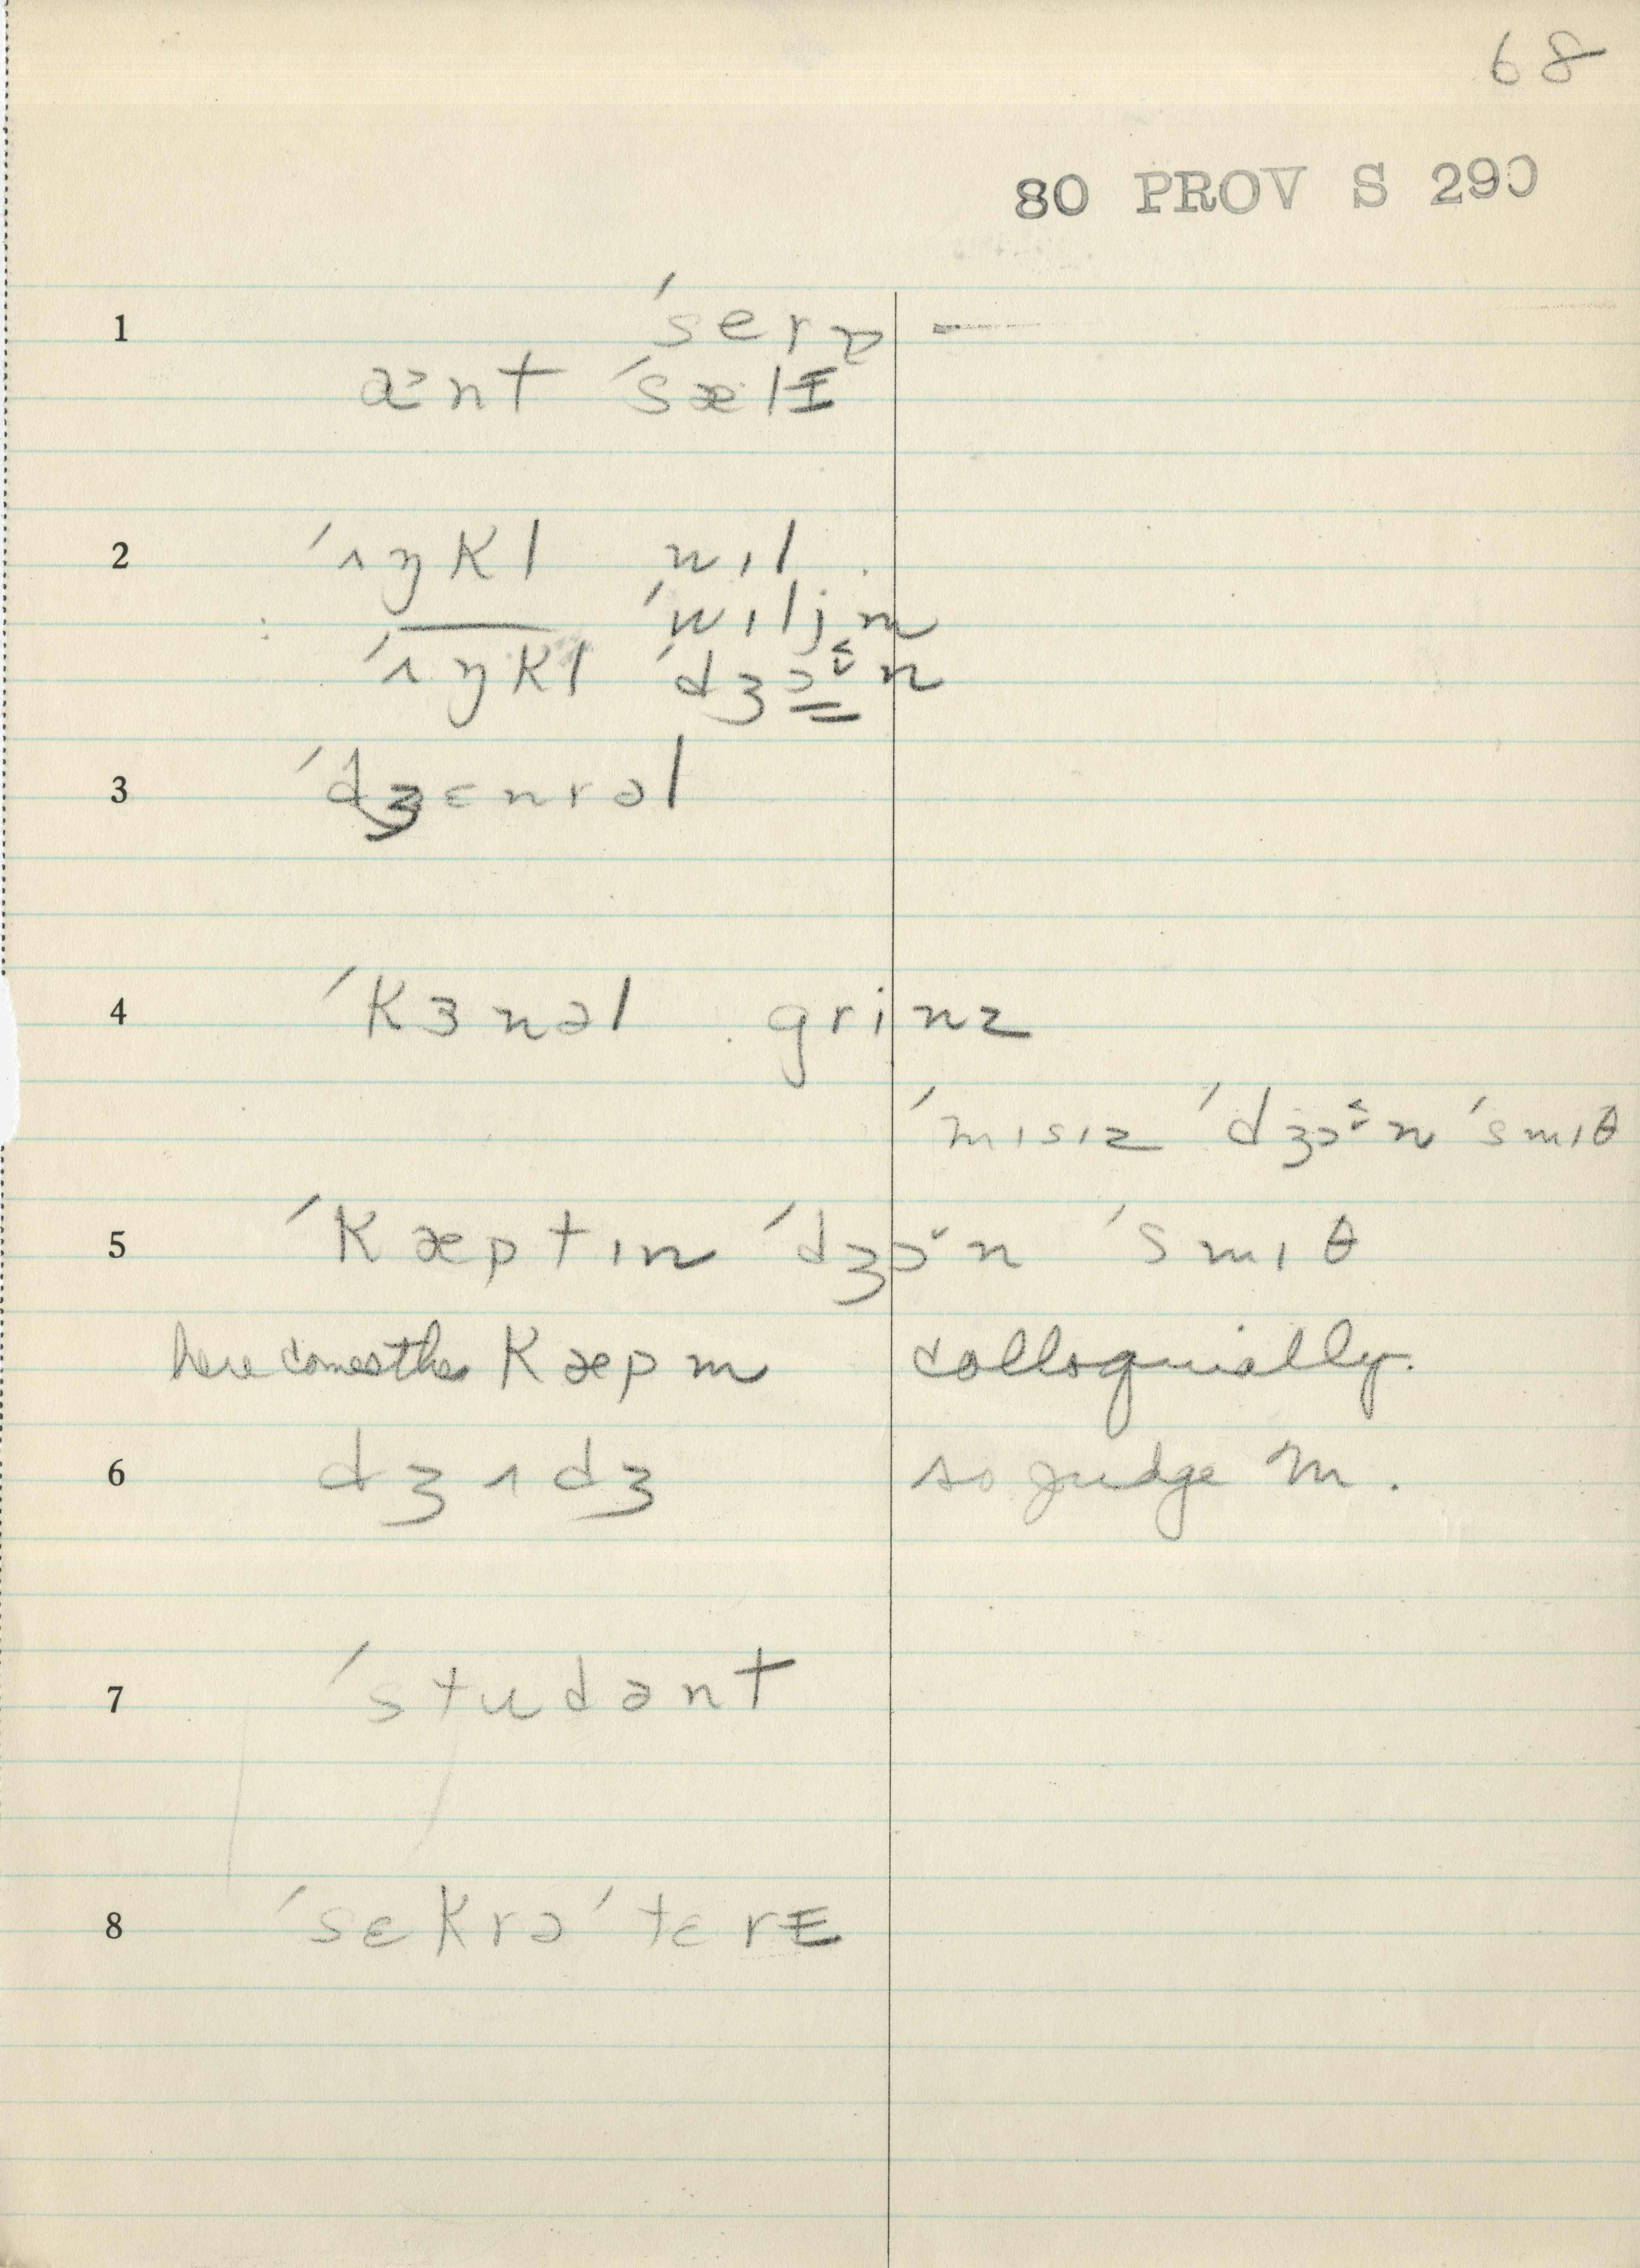 68
80 PROV S 290
1 ˈserə –
aˑnt ˈsælɪ
2 ˈʌŋkl wɪl
ˈwɪljm
ˈʌŋkl ˈdʒɔˑn
3 ˈdʒɛnrəl
4 ˈkɜnəl grinz
ˈmɪsɪz ˈdʒɔˑn ˈsmɪθ
5 ˈkæptɪn ˈdʒɔˑn ˈsmɪθ
here comes the kæpm colloquially.
6 dʒʌdʒ so judge M.
7 ˈstudənt
8 ˈsɛkrəˈtɛrɪ